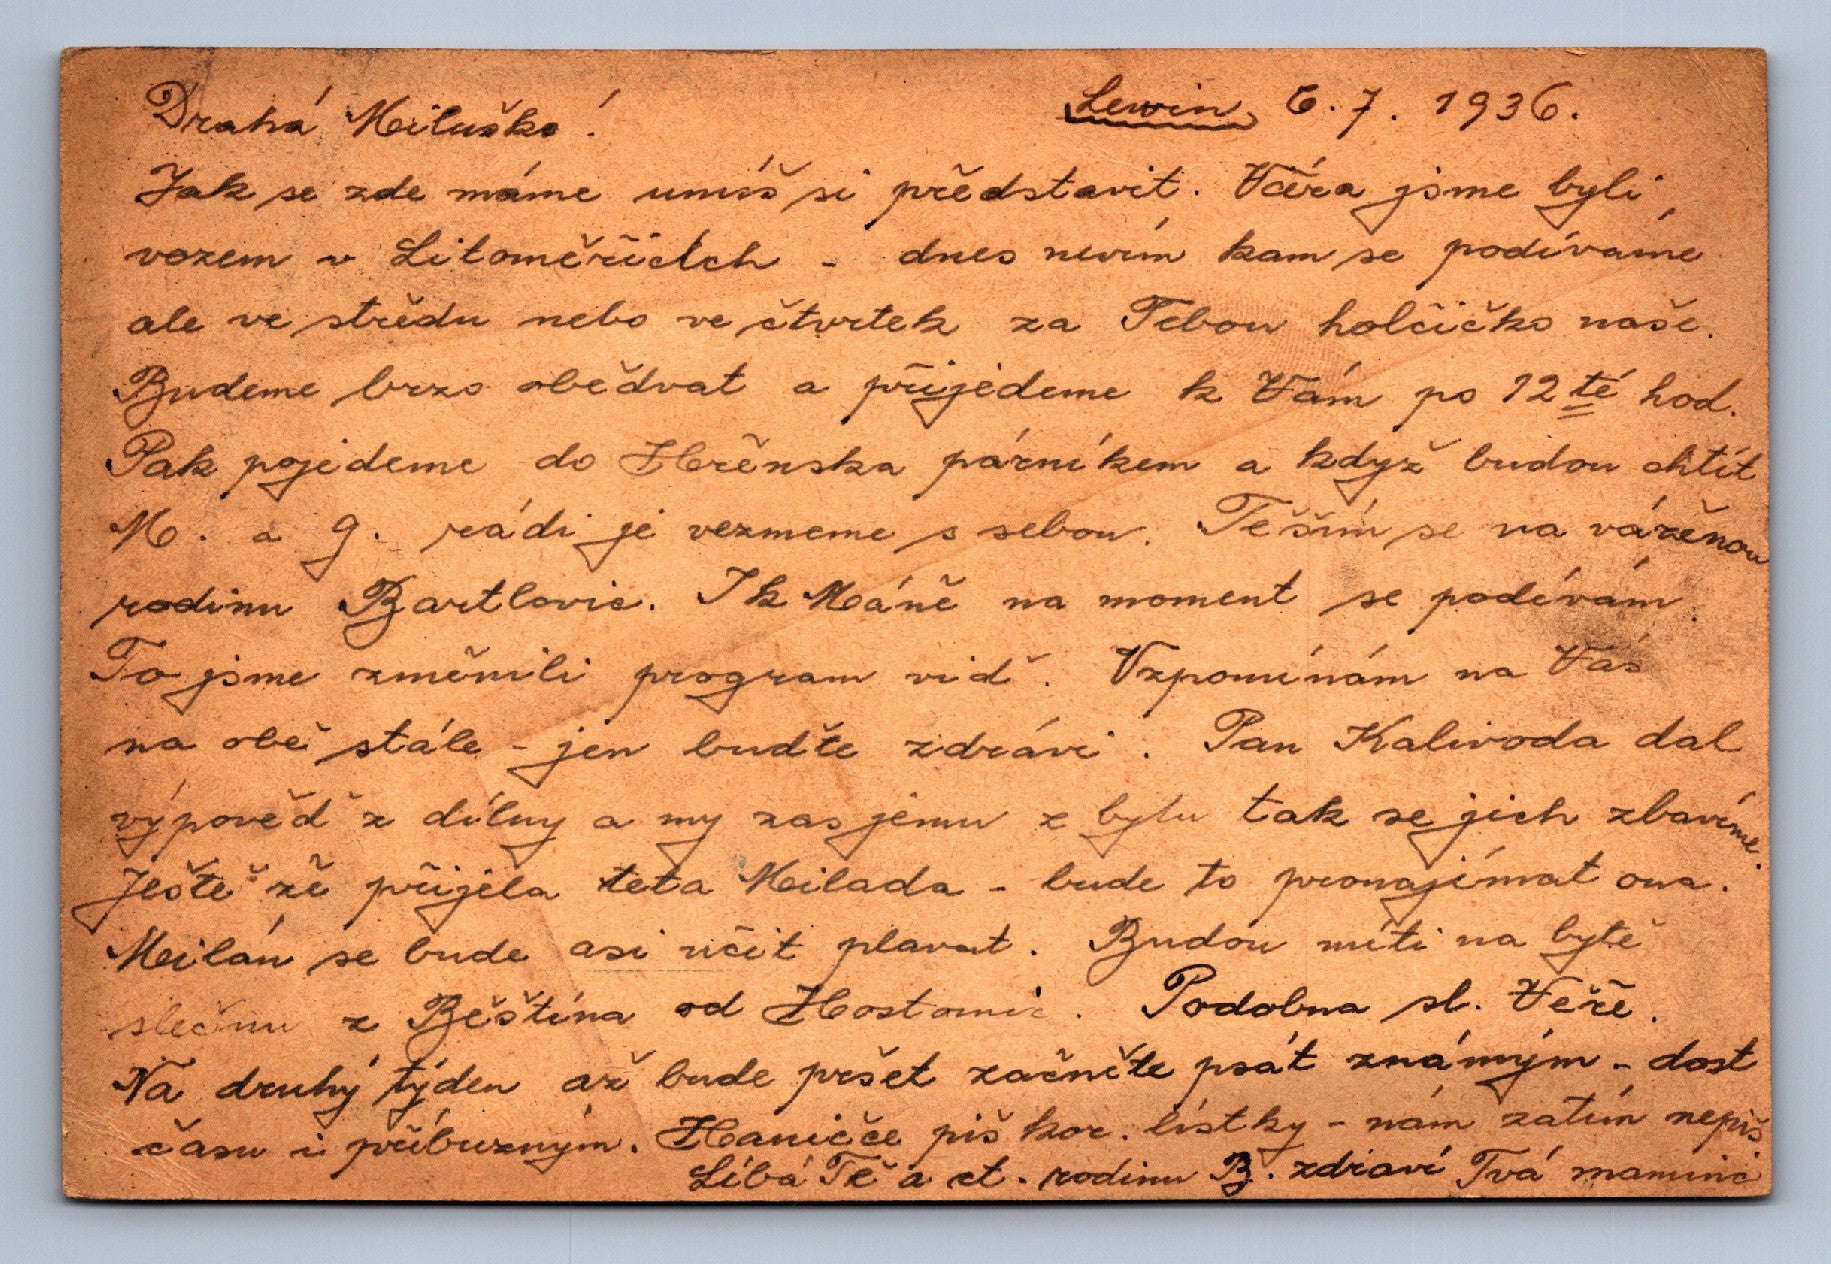 Lewin 6. 7. 1936.
Drahá Miluško!
Jak se zde máme umíš si představit. Včéra jsme byli
vozem v Litoměřicích - dnes nevím kam se podíváme
ale ve středu nebo ve čtvrtek za Tebou holčičko naše.
Budeme brzo obědvat a přijedeme k Vám po 12té hod.
Pak pojedeme do Hřenska párníkem a když budou chtít
M. a J. rádi je vezmeme s sebou. Těším se na váženou
rodinu Bartlovic. I k Máně na moment se podívám.
To jsme změnili program viď. Vzpomínám na Vás
na obě stále - jen buďte zdrávi. Pan Kalivoda dal
výpověď z dílny a my zas jemu z bytu tak se jich zbavíme.
Ještě že přijela teta Milada - bude to pronajímat ona.
Milán se bude asi učit plavat. Budou míti na bytě
slečnu z Běštína od Hostomic. Podobna sl. Věře.
Na druhý týden až bude pršet začněte psát známým - dost
času i příbuzným. Haničče piš kor. lístky - nám zatím nepiš
Líbá Tě a ct. rodinu B. zdraví Tvá maminc